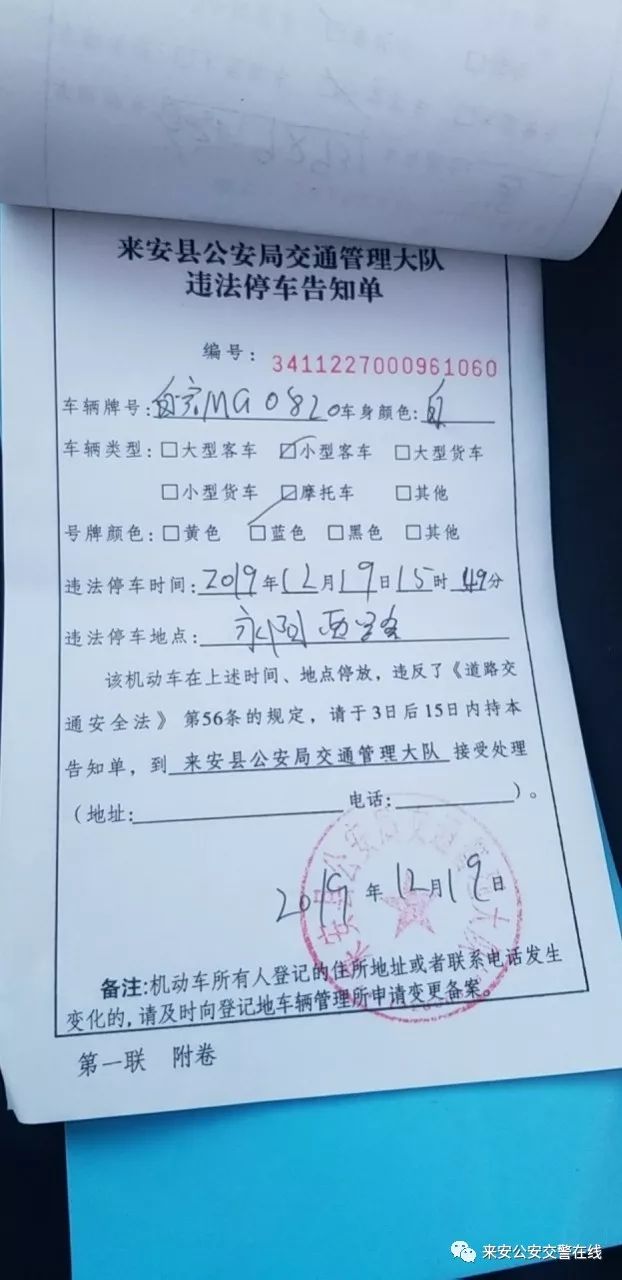 来安县公安局交通管理大队
违法停车告知单
编号：3411227000961060
车辆牌号：皖MG0820 车身颜色：白
车辆类型：□大型客车 ☑小型客车 □大型货车
□小型货车 □摩托车 □其他
号牌颜色：□黄色 ☑蓝色 □黑色 □其他
违法停车时间：2019年12月19日15时49分
违法停车地点：永阳西路
该机动车在上述时间、地点停放，违反了《道路交
通安全法》第56条的规定，请于3日后15日内持本
告知单，到 来安县公安局交通管理大队 接受处理
（地址： 电话： ）。
来安县公安局交通管理大队
2019年12月19日
备注：机动车所有人登记的住所地址或者联系电话发生
变化的，请及时向登记地车辆管理所申请变更备案。
第一联 附卷
来安公安交警在线